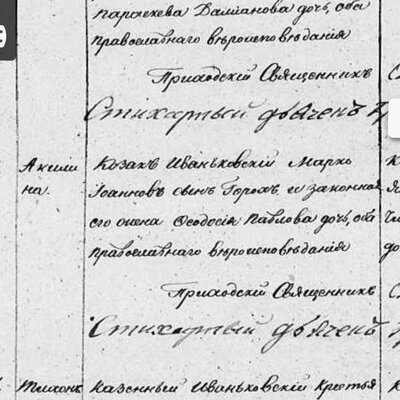 Параскева Даміанова дочь, оба
православнаго вѣроисповѣданія
Приходскій Священникъ
Стихарный дьяченъ
Акили
на.
Козакъ Иваньковскій Марко
Іоанновъ сынъ и законная
его жена Ѳеодосія Павлова дочь, оба
православнаго вѣроисповѣданія
Приходскій Священникъ
Стихарный дьяченъ
Тихонъ
Казенный Иваньковскій Крестья